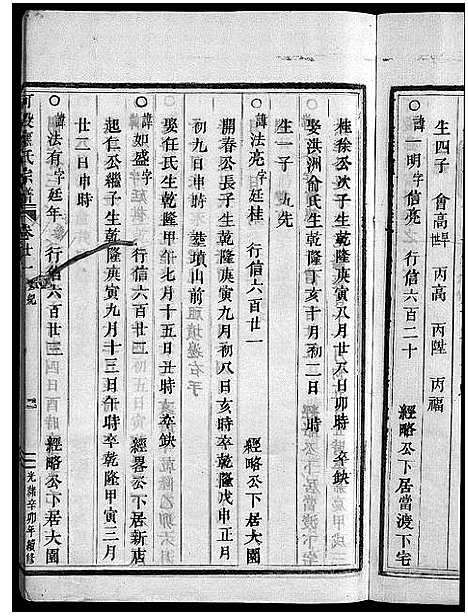 生四子 會高 丙高 丙陞 丙福
○諱一明字信亮 行信六百二十 經略公下居當渡下宅
桂徐公次子生乾隆庚寅八月廿八日卯時 卒缺
娶洪洲俞氏生乾隆丁亥十月初二日 時
生一子 九先
○諱法亮字廷桂 行信六百廿一 經略公下居大園
開春公長子生乾隆庚寅九月初八日亥時卒乾隆戊申正月
初九日申時 塟墳山前
娶任氏生乾隆甲午七月十五日丑時 卒缺
○諱如盛字 行信六百廿二 經畧公下居新店
起仁公繼子生乾隆庚寅九月十三日午時卒乾隆甲寅二月
廿二日申時
○諱法有字廷年 行信六百廿三 經略公下居大園
氏宗譜 卷廿一 紀 光緒辛卯年續修